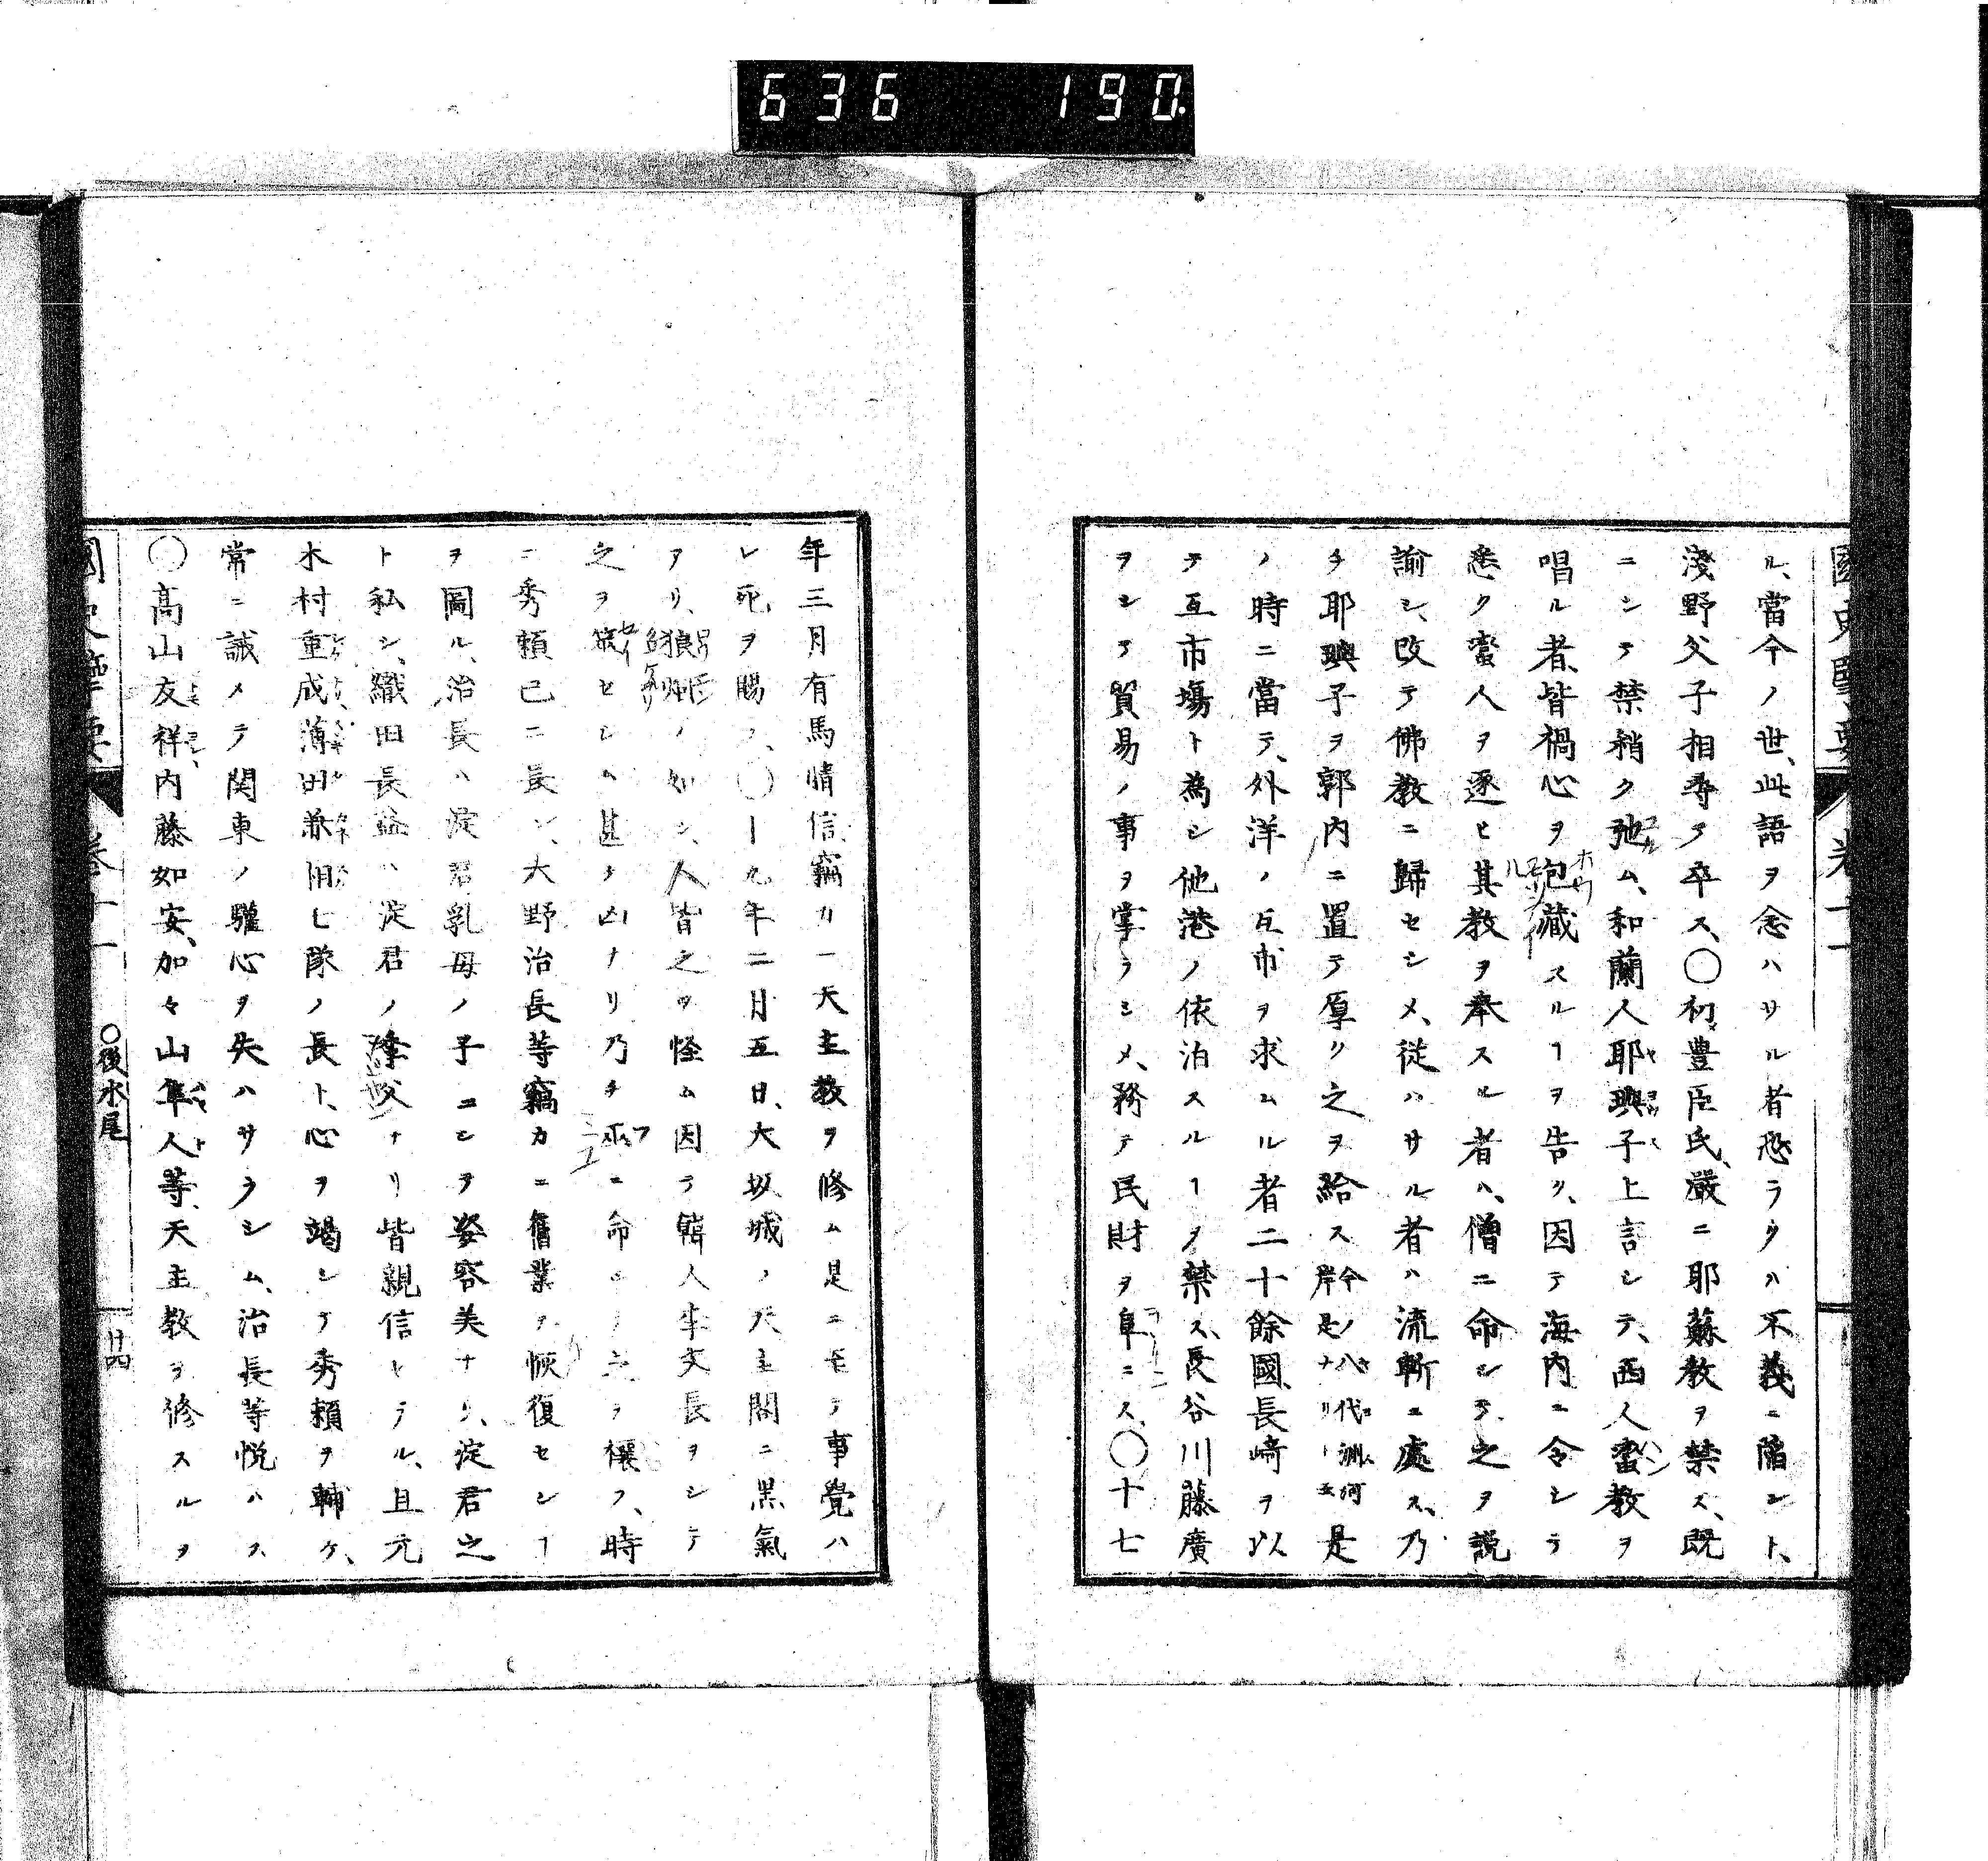 636 190.
ル、當今ノ世、此語ヲ念ハサル者恐ラクハ不義ニ陷ント、
淺野父子相尋テ卒ス、〇初、豊臣氏、嚴ニ耶蘇教ヲ禁ス、既
ニシテ禁稍ク弛ム、和蘭人耶興子上言シテ、西人蛮教ヲ
唱ル者、皆禍心ヲ包藏スルヿヲ告ク、因テ海内ニ令シテ
悉ク蛮人ヲ逐ヒ其教ヲ奉スル者ハ、僧ニ命シテ、之ヲ説
諭シ、改テ佛教ニ歸セシメ、從ハサル者ハ流斬ニ處ス、乃
チ耶興子ヲ郭内ニ置テ厚ク之ヲ給ス今ノ八代洲河岸是ナリ是
ノ時ニ當テ、外洋ノ互市ヲ求ムル者二十餘國、長崎ヲ以
テ互市場ト為シ他港ノ依泊スルヿヲ禁ス、長谷川藤廣
ヲシテ貿易ノ事ヲ掌ラシメ、務テ民財ヲ阜ニス、〇十七
年三月有馬晴信、竊カニ天主教ヲ修ム是ニ至テ事覺ハ
レ死ヲ賜フ、〇十九年二月五日、大坂城ノ天主閣ニ黒氣
アリ、狼烟ノ如シ、人皆之ヲ怪ム因テ韓人李文長ヲシテ
之ヲ筮セシム甚タ凶ナリ乃チ巫ニ命シテ之ヲ禳フ、時
ニ秀頼已ニ長シ、大野治長等竊カニ舊業ヲ恢復センヿ
ヲ圖ル、治長ハ淀君乳母ノ子ニシテ姿容美ナリ、淀君之
ト私シ、織田長益ハ淀君ノ季父ナリ皆親信セラル、且元
木村重成薄田兼相七隊ノ長ト、心ヲ竭シテ秀頼ヲ輔ケ、
常ニ誡メテ関東ノ驩心ヲ失ハサラシム、治長等悦ハス
〇高山友祥内藤如安、加々山隼人等、天主教ヲ修スルヲ
〇後水尾
廿四